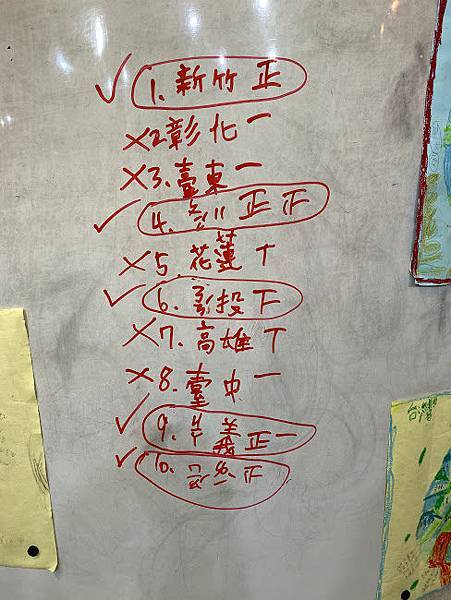 1. 新竹 正
2 彰化 一
3. 臺東 一
4. 正 正
5. 花蓮 丅
6. 投 下
7. 高雄 丅
8. 臺中 一
9. 義 正一
10. 正
台灣